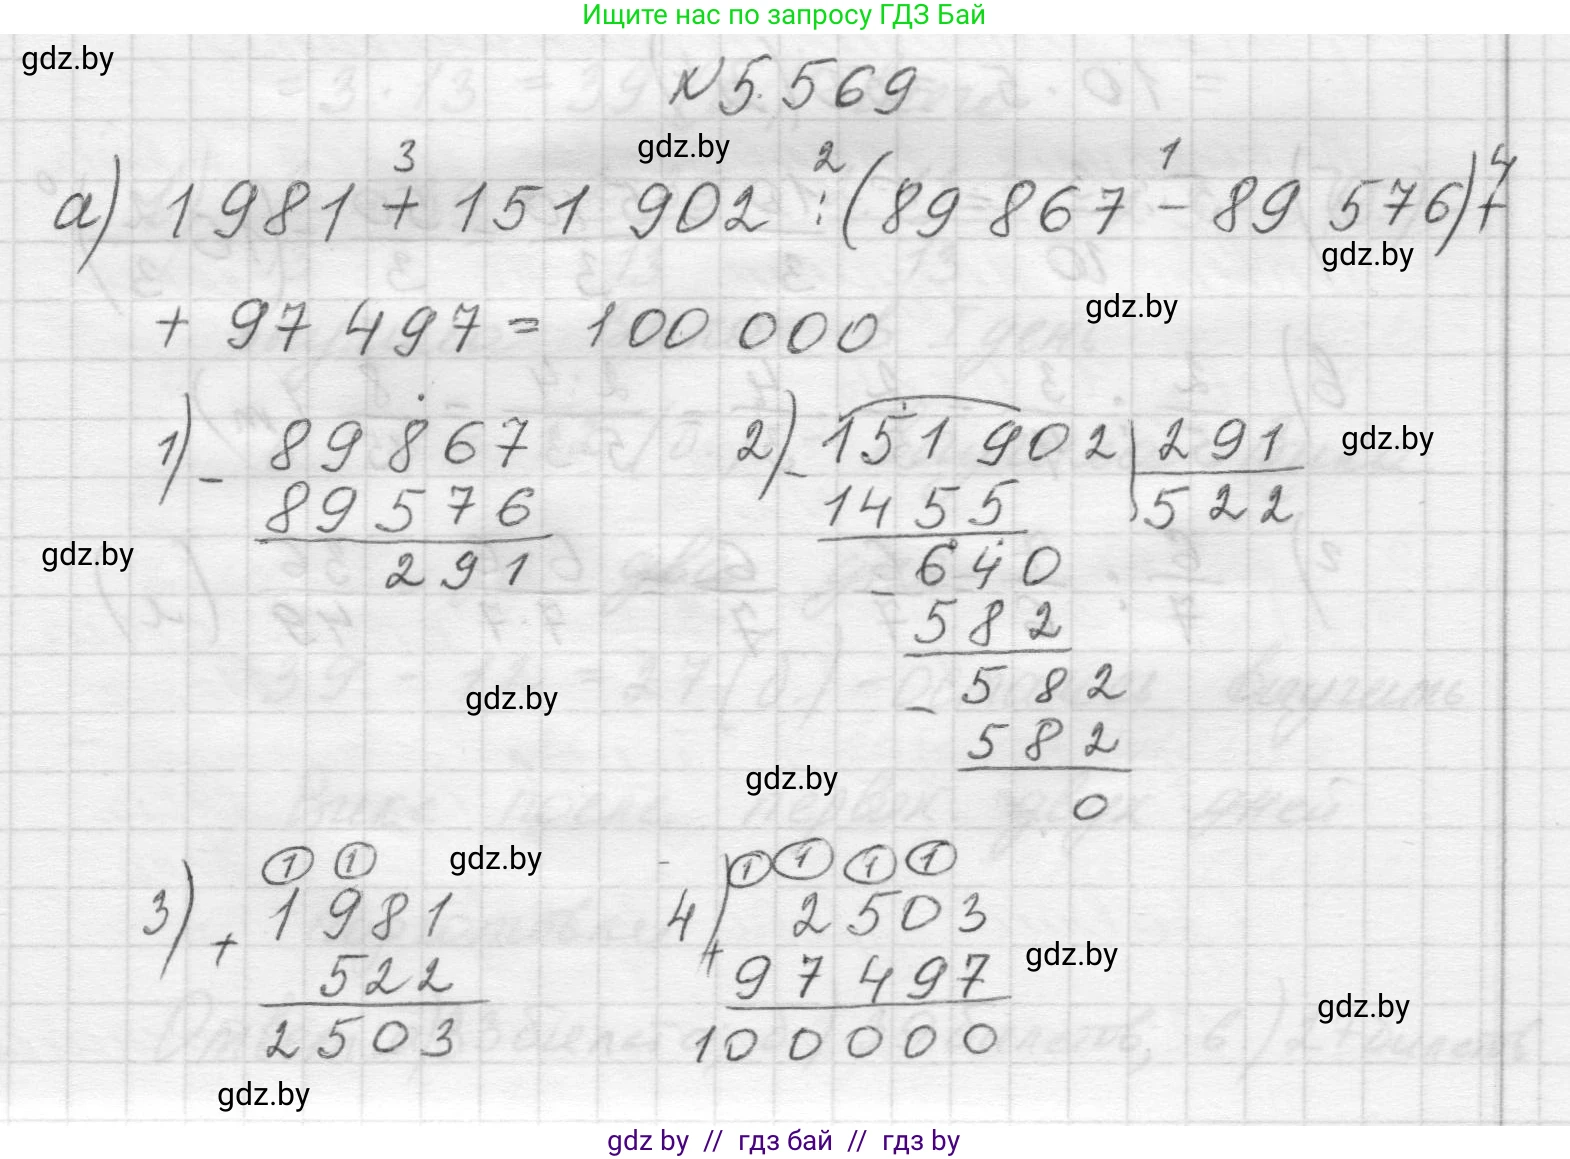 Ищите нас по запросу ГДЗ Бай
gdz.by
№ 5.569
gdz.by
3 2 1 4
а) 1981 + 151 902 : (89 867 - 89 576) +
gdz.by
+ 97 497 = 100 000
gdz.by
1) - 89867
89576
291
2) - 151 902 | 291
522
1455
- 640
582
- 582
582
0
gdz.by
gdz.by
gdz.by
gdz.by
3) 1 1
+ 1981
522
2503
gdz.by
4) 1 1 1 1
+ 2503
97497
100000
gdz.by
gdz.by
gdz.by
gdz by // гдз бай // гдз by